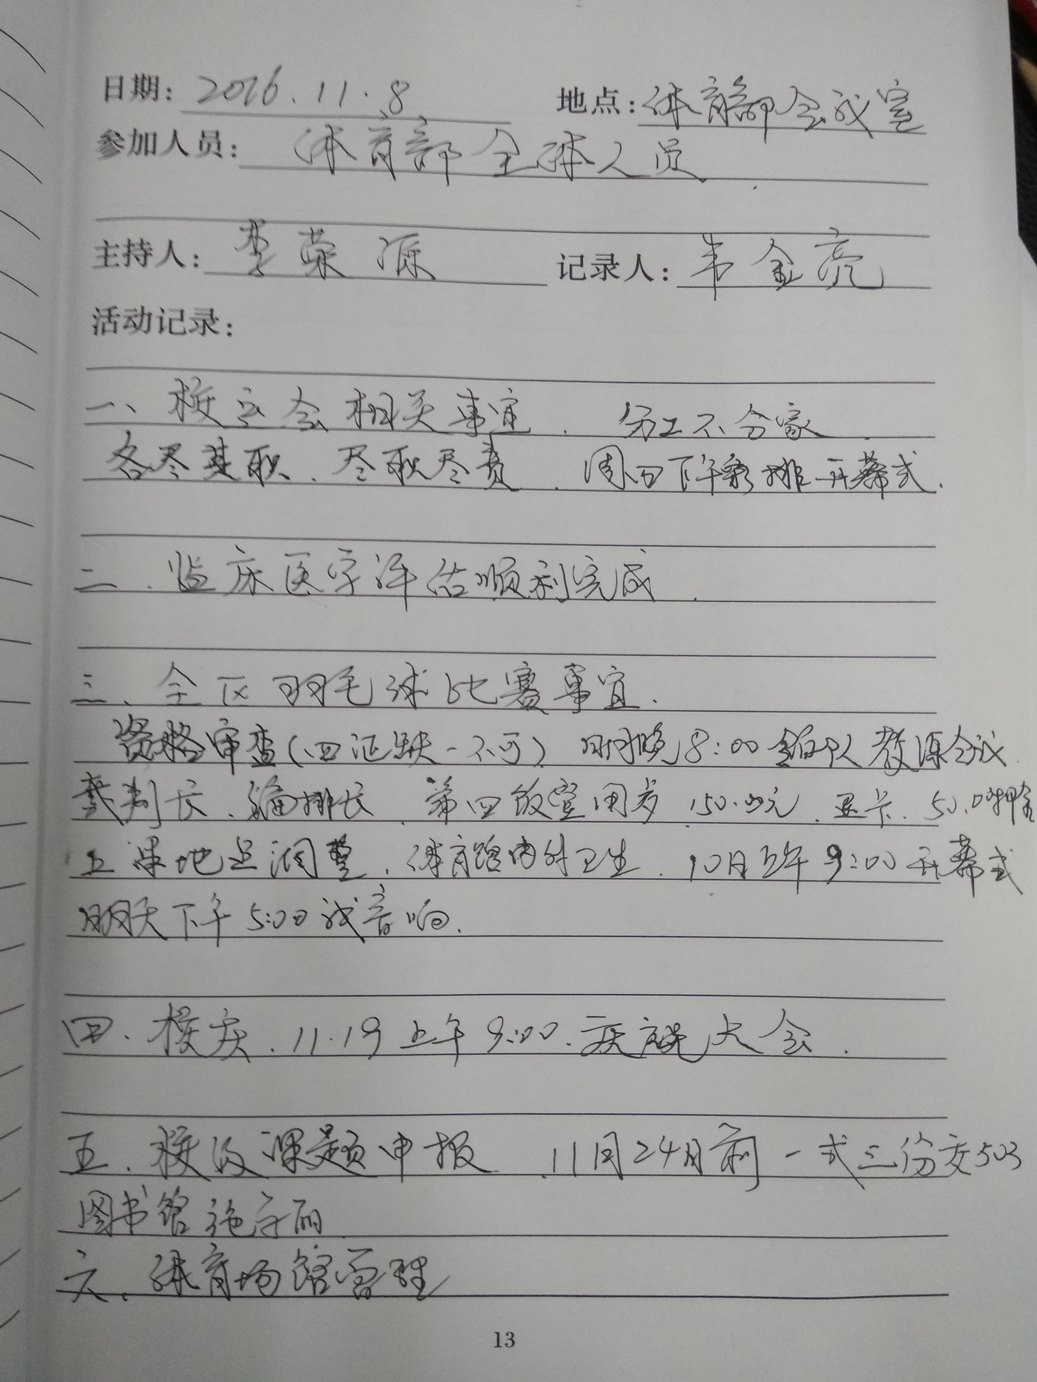 日期: 2016.11.8 地点: 体育部会议室
参加人员: 体育部全体人员
主持人: 李荣源 记录人: 韦金亮
活动记录:
一、校运会相关事宜. 分工不分家
各尽其职、尽职尽责. 周四下午彩排开幕式.
二、临床医学评估顺利完成.
三、全区羽毛球比赛事宜.
资格审查(四证缺一不可) 明晚8:00领队教练会议
裁判长、编排长、第四 150.00元、 50.00押金
上课地点调整、体育馆内外卫生. 10日上午9:00开幕式
明天下午5:00试音响.
四、校庆. 11.19上午9:00. 庆祝大会.
五、校级课题申报 11月24日前一式三份交503
图书馆
六、体育场馆管理
13